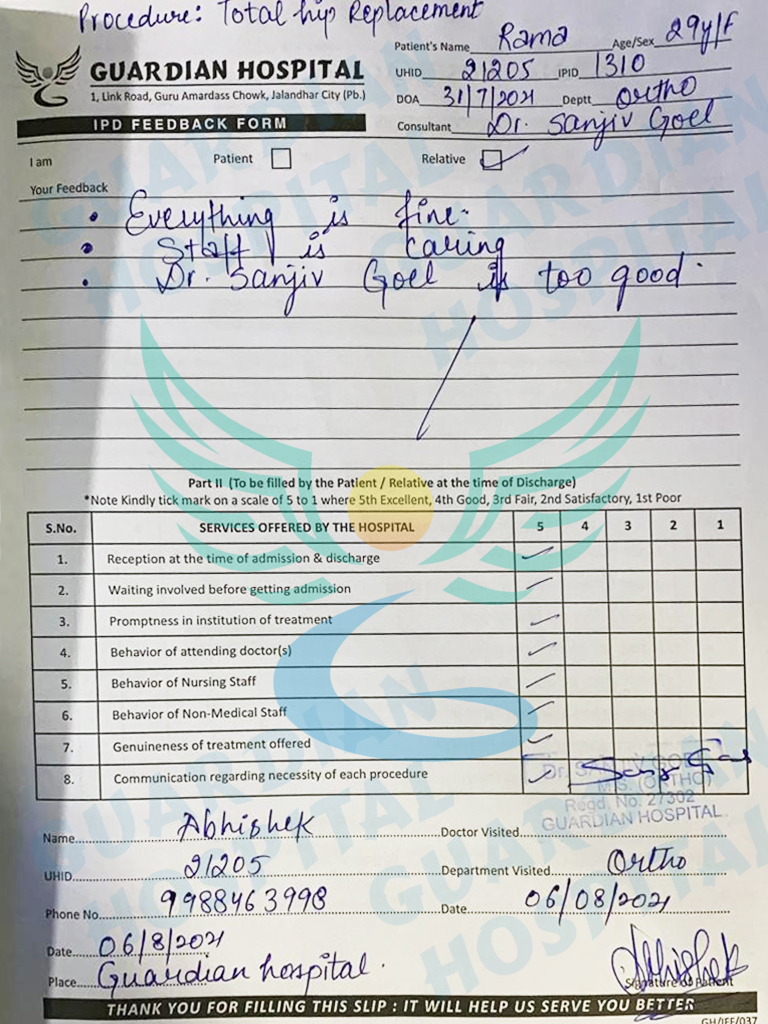 Procedure: Total hip Replacement
GUARDIAN HOSPITAL
1, Link Road, Guru Amardass Chowk, Jalandhar City (Pb.)
IPD FEEDBACK FORM
Patient's Name Rama Age/Sex 29y/F
UHID 21205 IPID 1310
DOA 31/7/2021 Deptt Ortho
Consultant Dr. Sanjiv Goel
I am Patient Relative
Your Feedback
• Everything is fine.
• Staff is caring
• Dr. Sanjiv Goel is too good.
Part II (To be filled by the Patient / Relative at the time of Discharge)
*Note Kindly tick mark on a scale of 5 to 1 where 5th Excellent, 4th Good, 3rd Fair, 2nd Satisfactory, 1st Poor
S.No. SERVICES OFFERED BY THE HOSPITAL 5 4 3 2 1
1. Reception at the time of admission & discharge
2. Waiting involved before getting admission
3. Promptness in institution of treatment
4. Behavior of attending doctor(s)
5. Behavior of Nursing Staff
6. Behavior of Non-Medical Staff
7. Genuineness of treatment offered
8. Communication regarding necessity of each procedure
M.S. (ORTHO)
Regd. No. 27302
GUARDIAN HOSPITAL
Name Abhishek Doctor Visited
UHID 21205 Department Visited Ortho
Phone No. 9988463998 Date 06/08/2021
Date 06/8/2021
Place Guardian hospital. Abhishek
Signature of Patient
THANK YOU FOR FILLING THIS SLIP : IT WILL HELP US SERVE YOU BETTER
GH/IFF/037
GUARDIAN HOSPITAL